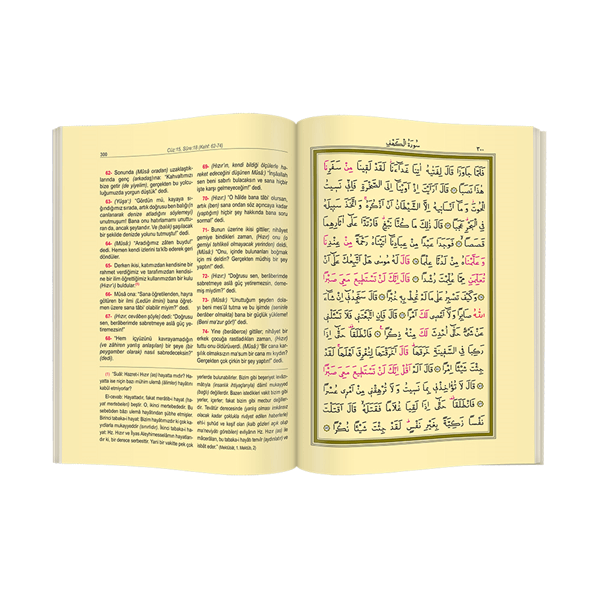 308
Cüz:15, Sûre:18 (Kehf: 62-74)
62- Sonunda (Mûsâ oradan) uzaklaştıklarında genç (arkadaş)ına: "Kahvaltımızı
bize getir (de yiyelim), gerçekten bu yolculuğumuzda yorgun düştük" dedi.
63- (Yûşa'): "Gördün mü, kayaya sığındığımız sırada, artık doğrusu ben balığı(n
canlanarak denize atladığını söylemeyi)
unutmuşum! Bana onu hatırlamamı unutturan da, ancak şeytandır. Ve (balık) şaşılacak
bir şekilde denizde yolunu tutmuştu!" dedi.
64- (Mûsâ:) "Aradığımız zâten buydu!"
dedi. Hemen kendi izlerini ta'kîb ederek geri
döndüler.
65- Derken ikisi, katımızdan kendisine bir
rahmet verdiğimiz ve tarafımızdan kendisine bir ilim öğrettiğimiz kullarımızdan bir kulu
(Hızır'ı) buldular.(1)
66- Mûsâ ona: "Sana öğretilenden, hayra
götüren bir ilmi (Ledün ilmini) bana öğretmen üzere sana tâbi' olabilir miyim?" dedi.
67- (Hızır, cevâben şöyle) dedi: "Doğrusu
sen, berâberimde sabretmeye aslâ güç yetiremezsin!"
68- "Hem içyüzünü kavrayamadığın
(ve zâhiren yanlış anlaşılan) bir şeye (bir
peygamber olarak) nasıl sabredeceksin?"
(dedi).
69- (Hızır'ın, kendi bildiği ölçülerle hareket edeceğini düşünen Mûsâ:) "İnşâallah
sen beni sabırlı bulacaksın ve sana hiçbir
işte karşı gelmeyeceğim!" dedi.
70- (Hızır:) "O hâlde bana tâbi' olursan,
artık (ben) sana ondan söz açıncaya kadar
(yaptığım) hiçbir şey hakkında bana soru
sorma!" dedi.
71- Bunun üzerine ikisi gittiler; nihâyet
gemiye bindikleri zaman, (Hızır) onu (o
gemiyi tehlikeli olmayacak yerinden) deldi.
(Mûsâ:) "Onu, içinde bulunanları boğmak
için mi deldin? Gerçekten müdhiş bir şey
yaptın!" dedi.
72- (Hızır:) "Doğrusu sen, berâberimde
sabretmeye aslâ güç yetiremezsin, demedim mi?" dedi.
73- (Mûsâ:) "Unuttuğum şeyden dolayı beni mes'ûl tutma ve bu işimde (seninle
berâber olmakta) bana bir güçlük yükleme!
(Beni ma'zur gör!)" dedi.
74- Yine (berâberce) gittiler; nihâyet bir
erkek çocuğa rastladıkları zaman, (Hızır)
tuttu onu öldürüverdi. (Mûsâ:) "Bir cana karşılık olmaksızın ma'sum bir cana mı kıydın?
Gerçekten çok çirkin bir şey yaptın!" dedi.
(1) "Suâl: Hazret-i Hızır (as) hayatta mıdır? Hayatta ise niçin bazı mühim ulemâ (âlimler) hayâtını
kabûl etmiyorlar?
El-cevab: Hayattadır, fakat merâtib-i hayat (hayat mertebeleri) beştir. O, ikinci mertebededir. Bu
sebebden bâzı ulemâ hayâtında şübhe etmişler.
Birinci tabaka-i hayat: Bizim hayâtımızdır ki çok kayıtlarla mukayyeddir (sınırlıdır). İkinci tabaka-i hayat: Hz. Hızır ve İlyas Aleyhimesselâmın hayatlarıdır ki, bir derece serbesttir. Yani bir vakitte pek çok
yerlerde bulunabilirler. Bizim gibi beşeriyet levâzımâtıyla (insanlık ihtiyaçlarıyla) dâimî mukayyed
(bağlı) değillerdir. Bazen istedikleri vakit bizim gibi
yerler, içerler; fakat bizim gibi mecbur değillerdir.
٣٠٠
سُورَةُ الْكَهْفِ
فَلَمَّا جَاوَزَا قَالَ لِفَتٰيهُ اٰتِنَا غَدَٓاءَنَا لَقَدْ لَقِينَا مِنْ سَفَرِنَا
هٰذَا نَصَبًا ۞ قَالَ اَرَاَيْتَ اِذْ اَوَيْنَٓا اِلَى الصَّخْرَةِ فَاِنِّي نَسِيتُ
الْحُوتَ وَمَٓا اَنْسٰينِيهُ اِلَّا الشَّيْطَانُ اَنْ اَذْكُرَهُ وَاتَّخَذَ سَبِيلَهُ
فِي الْبَحْرِ عَجَبًا ۞ قَالَ ذٰلِكَ مَا كُنَّا نَبْغِ فَارْتَدَّا عَلٰٓى اٰثَارِهِمَا
قَصَصًا ۞ فَوَجَدَا عَبْدًا مِنْ عِبَادِنَٓا اٰتَيْنَاهُ رَحْمَةً مِنْ عِنْدِنَا
وَعَلَّمْنَاهُ مِنْ لَدُنَّا عِلْمًا ۞ قَالَ لَهُ مُوسٰى هَلْ اَتَّبِعُكَ عَلٰٓى اَنْ
تُعَلِّمَنِ مِمَّا عُلِّمْتَ رُشْدًا ۞ قَالَ اِنَّكَ لَنْ تَسْتَطِيعَ مَعِيَ صَبْرًا
۞ وَكَيْفَ تَصْبِرُ عَلٰى مَا لَمْ تُحِطْ بِهِ خُبْرًا ۞ قَالَ سَتَجِدُنِٓي اِنْ شَٓاءَ
اللّٰهُ صَابِرًا وَلَٓا اَعْصِي لَكَ اَمْرًا ۞ قَالَ فَاِنِ اتَّبَعْتَنِي فَلَا تَسْـَٔلْنِي
عَنْ شَيْءٍ حَتّٰٓى اُحْدِثَ لَكَ مِنْهُ ذِكْرًا ۞ فَانْطَلَقَا حَتّٰٓى
اِذَا رَكِبَا فِي السَّفِينَةِ خَرَقَهَا قَالَ اَخَرَقْتَهَا لِتُغْرِقَ اَهْلَهَا لَقَدْ
جِئْتَ شَيْـًٔا اِمْرًا ۞ قَالَ اَلَمْ اَقُلْ اِنَّكَ لَنْ تَسْتَطِيعَ مَعِيَ صَبْرًا
۞ قَالَ لَا تُؤَاخِذْنِي بِمَا نَسِيتُ وَلَا تُرْهِقْنِي مِنْ اَمْرِي عُسْرًا
۞ فَانْطَلَقَا حَتّٰٓى اِذَا لَقِيَا غُلَامًا فَقَتَلَهُ قَالَ اَقَتَلْتَ
نَفْسًا زَكِيَّةً بِغَيْرِ نَفْسٍ لَقَدْ جِئْتَ شَيْـًٔا نُكْرًا ۞